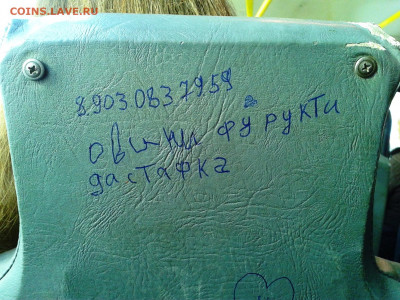 COINS.LAVE.RU
8.903.0837959.
овишки фурукти
дастафка